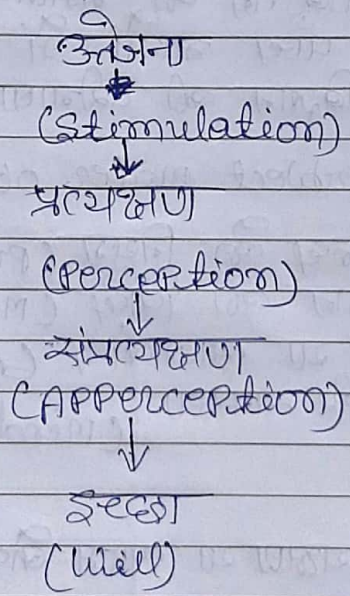 उत्तेजना
(Stimulation)
प्रत्यक्षण
(Perception)
संप्रत्यक्षण
(APPerception)
इच्छा
(Will)